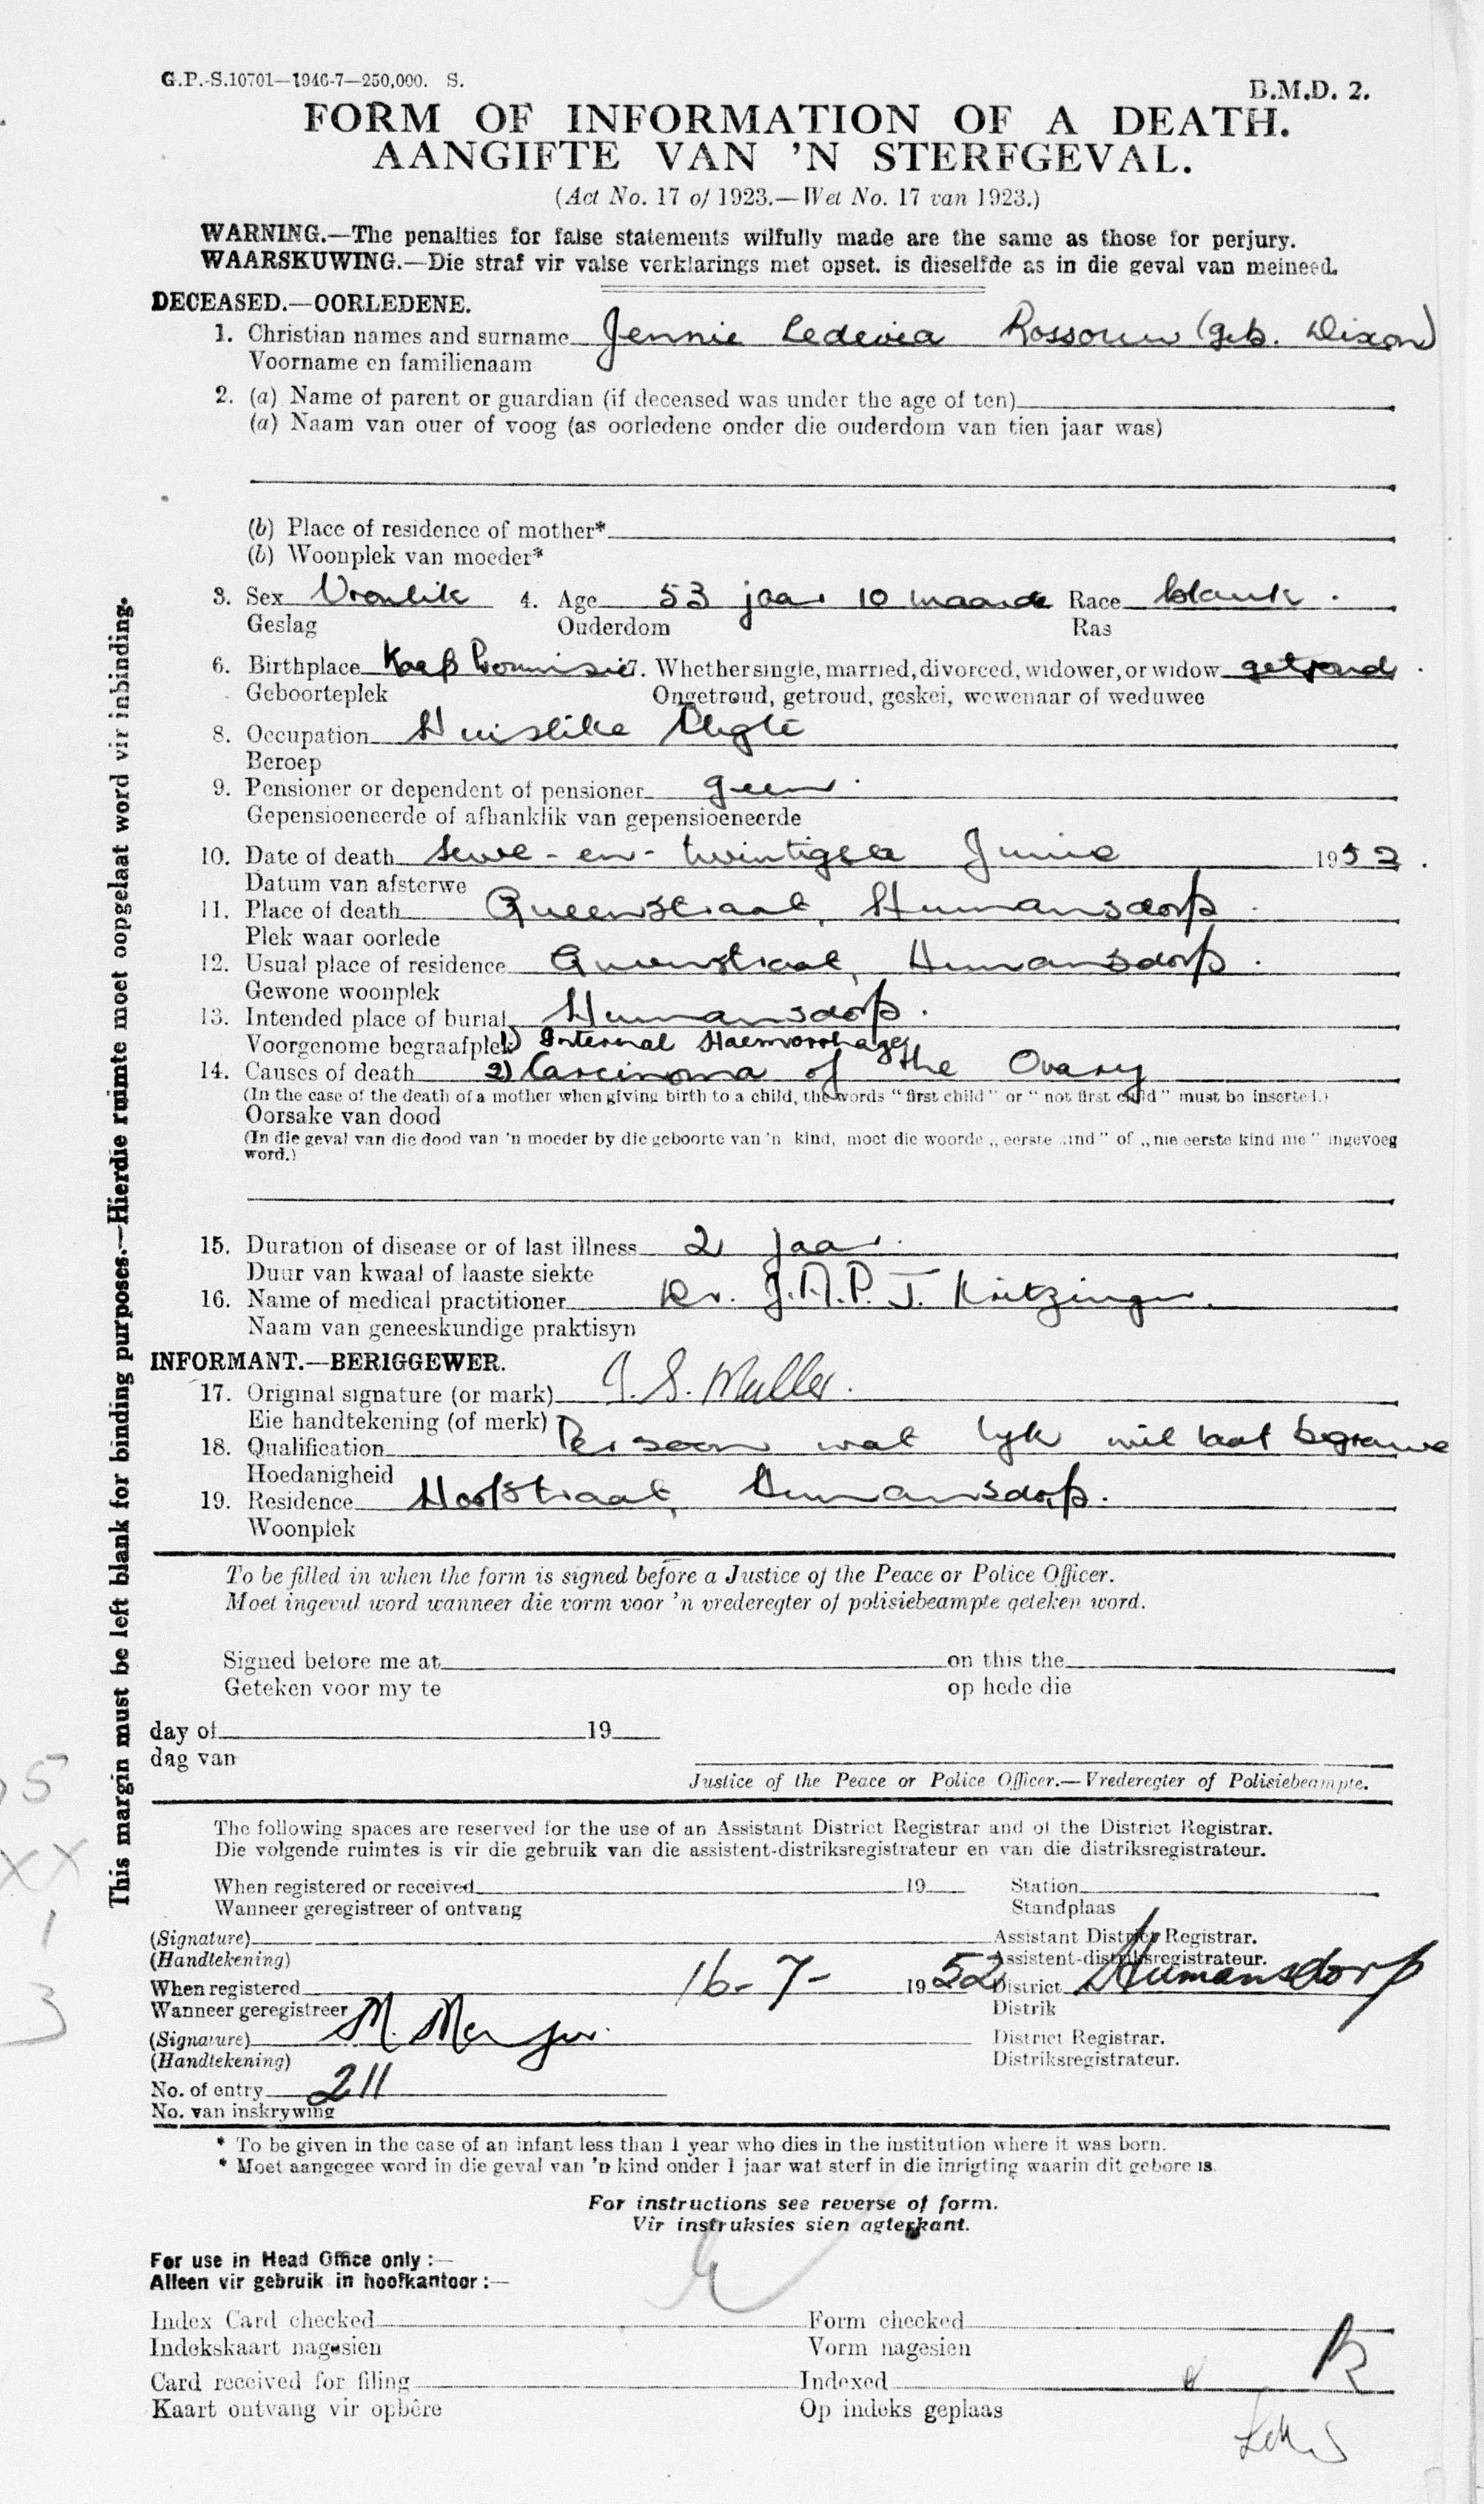 G.P.-S.10701—1946-7—250,000. S.
B.M.D. 2.
FORM OF INFORMATION OF A DEATH.
AANGIFTE VAN 'N STERFGEVAL.
(Act No. 17 of 1923.—Wet No. 17 van 1923.)
WARNING.—The penalties for false statements wilfully made are the same as those for perjury.
WAARSKUWING.—Die straf vir valse verklarings met opset. is dieselfde as in die geval van meineed.
DECEASED.—OORLEDENE.
1. Christian names and surname Jennie Rossouw (geb. Dixon)
Voorname en familienaam
2. (a) Name of parent or guardian (if deceased was under the age of ten)
(a) Naam van ouer of voog (as oorledene onder die ouderdom van tien jaar was)
(b) Place of residence of mother*
(b) Woonplek van moeder*
3. Sex Vroulik 4. Age 53 jaar 10 maande Race blank.
Geslag Ouderdom Ras
6. Birthplace Kaap Provinsie 7. Whether single, married, divorced, widower, or widow getroud.
Geboorteplek Ongetroud, getroud, geskei, wewenaar of weduwee
8. Occupation Huislike Pligte
Beroep
9. Pensioner or dependent of pensioner geen.
Gepensioeneerde of afhanklik van gepensioeneerde
10. Date of death sewe-en-twintigste Junie 1952.
Datum van afsterwe
11. Place of death Queenstraat, Humansdorp.
Plek waar oorlede
12. Usual place of residence Queenstraat, Humansdorp.
Gewone woonplek
13. Intended place of burial Humansdorp.
Voorgenome begraafplek 1) Internal Haemorrhage
14. Causes of death 2) Carcinoma of the Ovary
(In the case of the death of a mother when giving birth to a child, the words "first child" or "not first child" must be inserted.)
Oorsake van dood
(In die geval van die dood van 'n moeder by die geboorte van 'n kind, moet die woorde „eerste kind" of „nie eerste kind nie" ingevoeg
word.)
15. Duration of disease or of last illness 2 jaar.
Duur van kwaal of laaste siekte
16. Name of medical practitioner Dr. J.A.P.J. Kritzinger.
Naam van geneeskundige praktisyn
INFORMANT.—BERIGGEWER.
17. Original signature (or mark) J. S. Muller.
Eie handtekening (of merk)
18. Qualification Persoon wat lyk wil laat begrawe
Hoedanigheid
19. Residence Hoofstraat, Humansdorp.
Woonplek
To be filled in when the form is signed before a Justice of the Peace or Police Officer.
Moet ingevul word wanneer die vorm voor 'n vrederegter of polisiebeampte geteken word.
Signed before me at on this the
Geteken voor my te op hede die
day of 19
dag van
Justice of the Peace or Police Officer.—Vrederegter of Polisiebeampte.
The following spaces are reserved for the use of an Assistant District Registrar and of the District Registrar.
Die volgende ruimtes is vir die gebruik van die assistent-distriksregistrateur en van die distriksregistrateur.
When registered or received 19 Station
Wanneer geregistreer of ontvang Standplaas
(Signature) Assistant District Registrar.
(Handtekening) Assistent-distriksregistrateur.
When registered 16-7- 1952 District Humansdorp
Wanneer geregistreer Distrik
(Signature) District Registrar.
(Handtekening) Distriksregistrateur.
No. of entry 211
No. van inskrywing
* To be given in the case of an infant less than 1 year who dies in the institution where it was born.
* Moet aangegee word in die geval van 'n kind onder 1 jaar wat sterf in die inrigting waarin dit gebore is.
For instructions see reverse of form.
Vir instruksies sien agterkant.
For use in Head Office only :—
Alleen vir gebruik in hoofkantoor :—
Index Card checked Form checked
Indekskaart nagesien Vorm nagesien
Card received for filing Indexed
Kaart ontvang vir opbêre Op indeks geplaas
This margin must be left blank for binding purposes.—Hierdie ruimte moet oopgelaat word vir inbinding.
5
XX
1
3